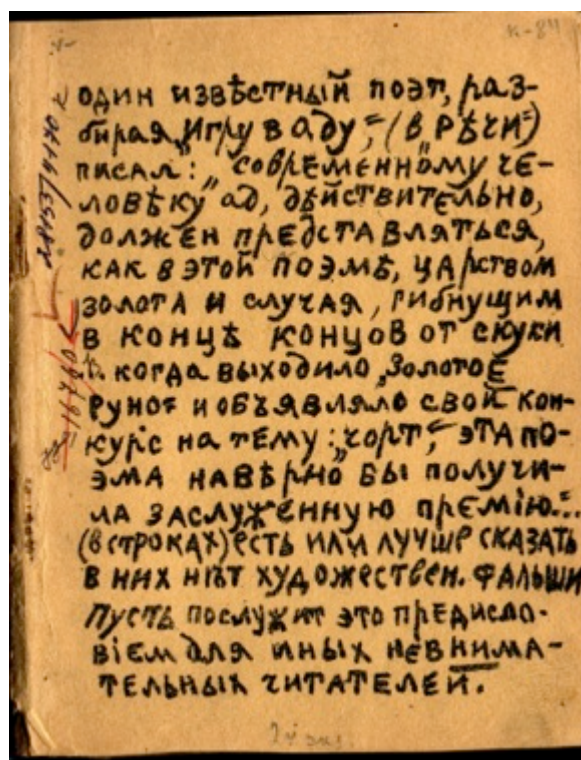 к-84
один извѣстный поэт, раз-
бирая „Игру в аду“, (в РѢчи)
писал: „современному че-
ловѣку ад, дѣйствительно,
должен представляться,
как в этой поэмѣ, царством
золота и случая, гибнущим
в концѣ концов от скуки
когда выходило „Золотоє
руно“ и объявляло свой кон-
курс на тему: „чорт“, эта по-
эма навѣрно бы получи-
ла заслуженную премію...
(в строках) есть или лучше сказать
в них нѣт художествен. фальши
Пусть послужит это предисло-
віем для иных невнима-
тельных читателей.